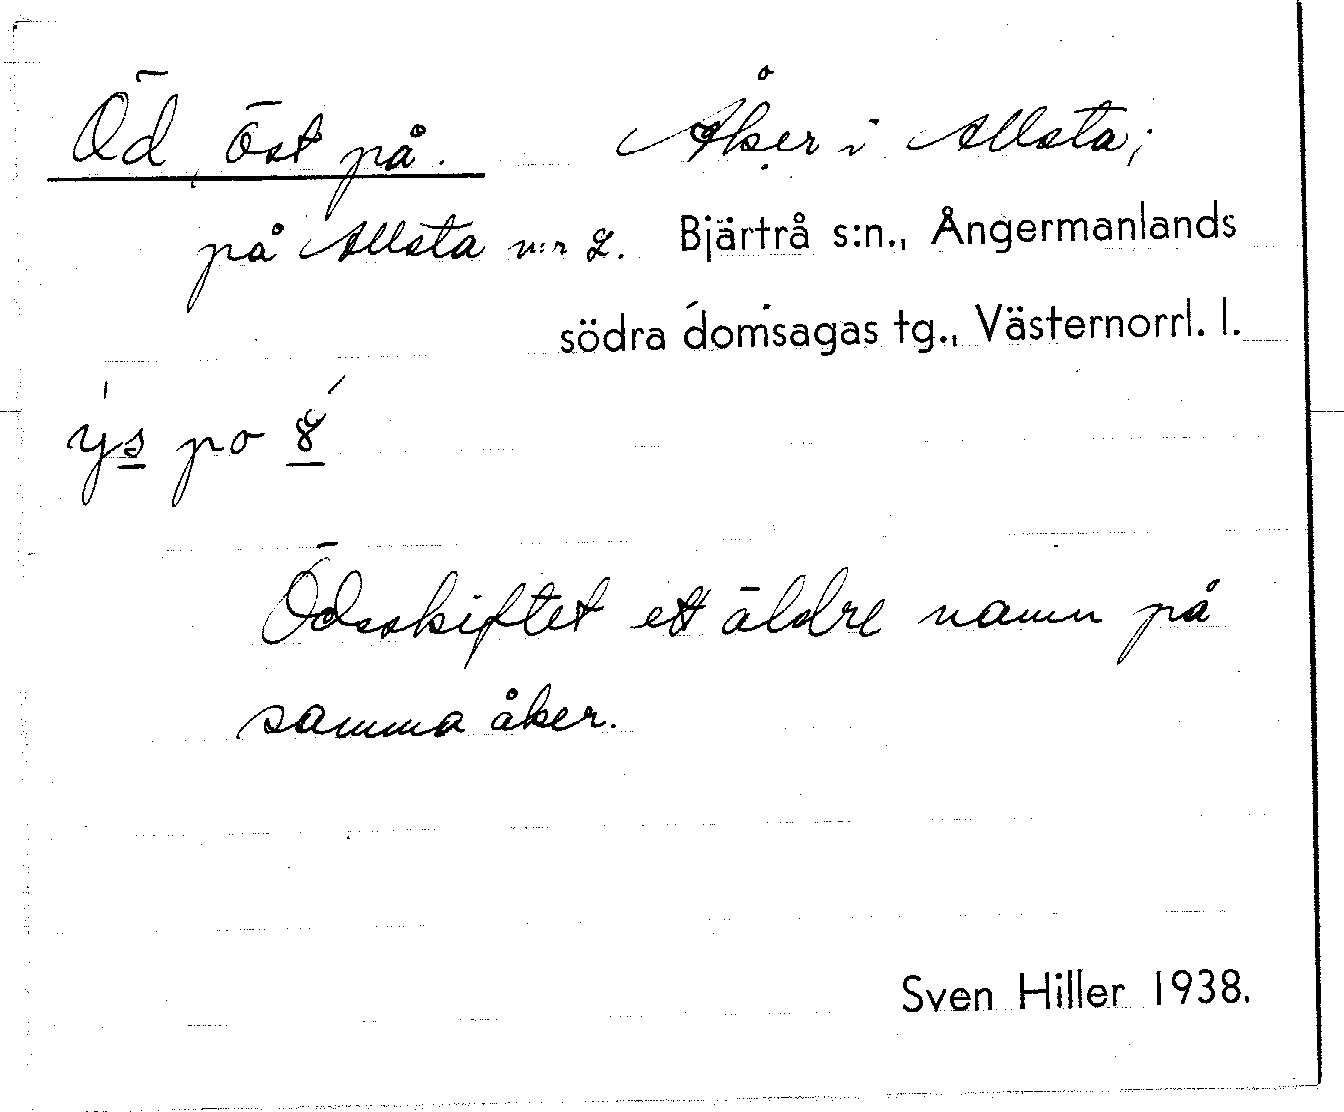 Öd, öst på. Åker i Allsta;
på Allsta n:r 2. Bjärtrå s:n., Ångermanlands
södra domsagas tg., Västernorrl. l.
ys po
Ödsskiftet ett äldre namn på
samma åker.
Sven Hiller 1938.